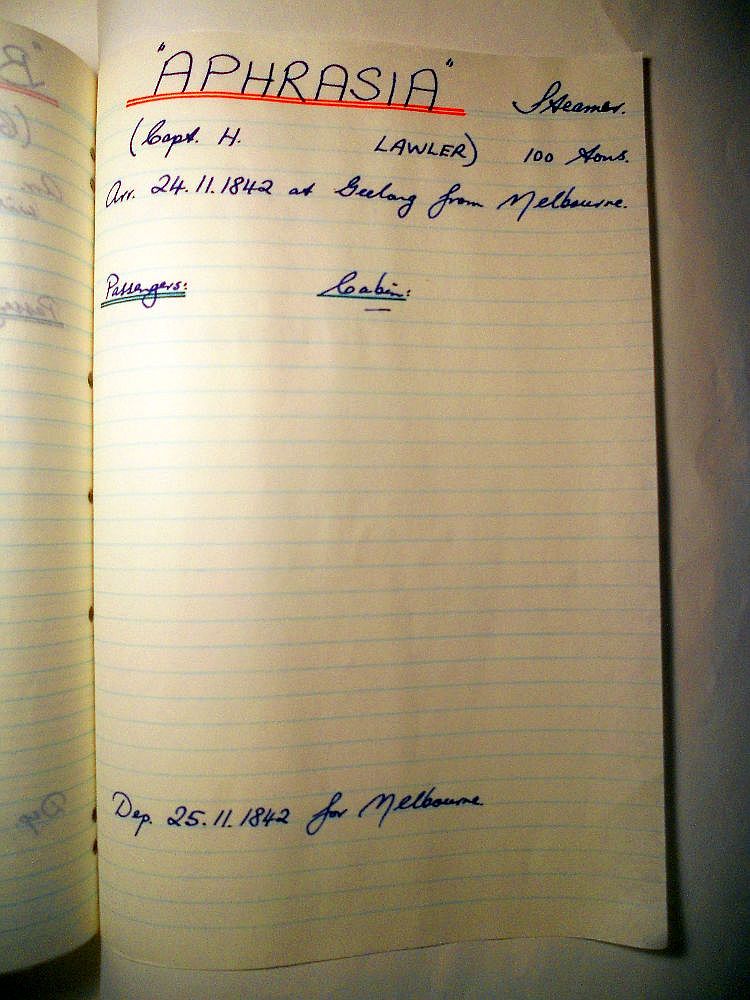 "APHRASIA" Steamer.
(Capt. H. LAWLER) 100 Tons.
Arr. 24.11.1842 at Geelong from Melbourne.
Passengers: Cabin:
Dep. 25.11.1842 for Melbourne.